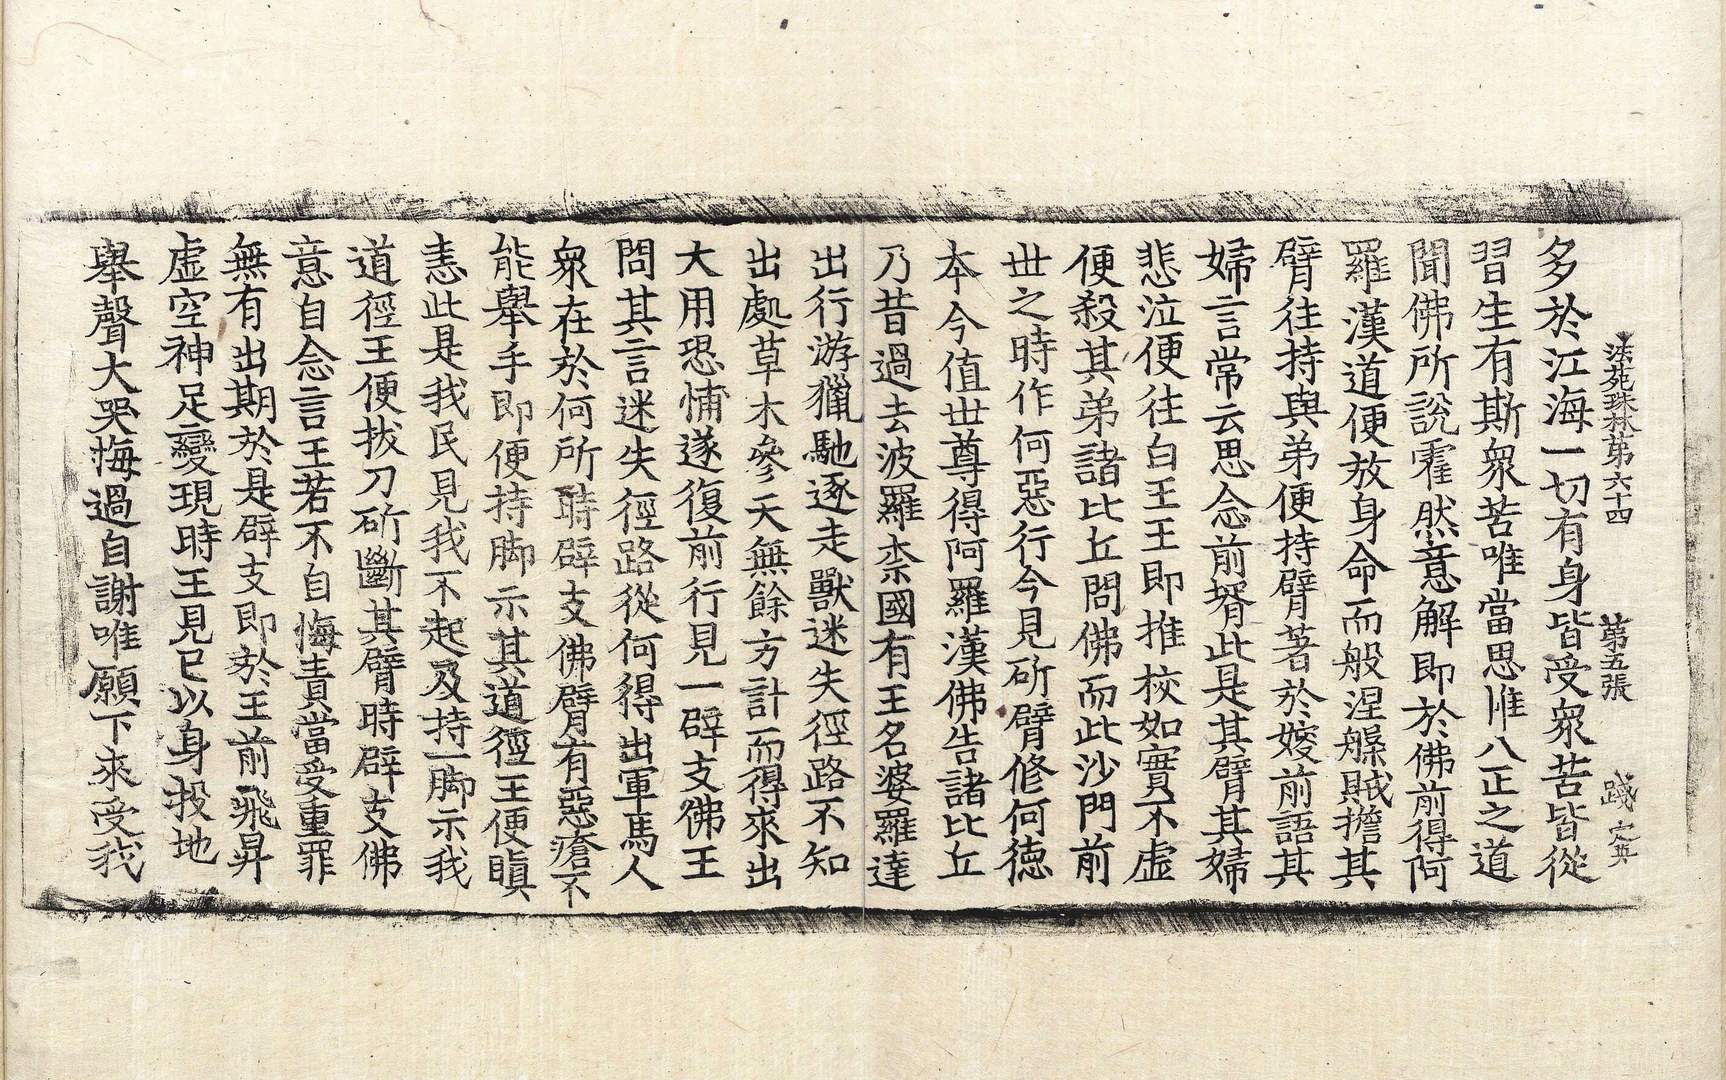 法苑珠林第六十四 第五張 踐 定英
多於江海一切有身皆受衆苦皆從
習生有斯衆苦唯當思惟八正之道
聞佛所說霍然意解即於佛前得阿
羅漢道便放身命而般涅槃賊擔其
臂往持與弟便持臂著於嫂前語其
婦言常云思念前壻此是其臂其婦
悲泣便往白王王即推校如實不虛
便殺其弟諸比丘問佛而此沙門前
世之時作何惡行今見斫臂修何德
本今值世尊得阿羅漢佛告諸比丘
乃昔過去波羅柰國有王名婆羅達
出行游獵馳逐走獸迷失徑路不知
出處草木參天無餘方計而得來出
大用恐怖遂復前行見一辟支佛王
問其言迷失徑路從何得出軍馬人
衆在於何所時辟支佛臂有惡瘡不
能舉手即便持脚示其道徑王便瞋
恚此是我民見我不起及持一脚示我
道徑王便拔刀斫斷其臂時辟支佛
意自念言王若不自悔責當受重罪
無有出期於是辟支即於王前飛昇
虛空神足變現時王見已以身投地
舉聲大哭悔過自謝唯願下來受我